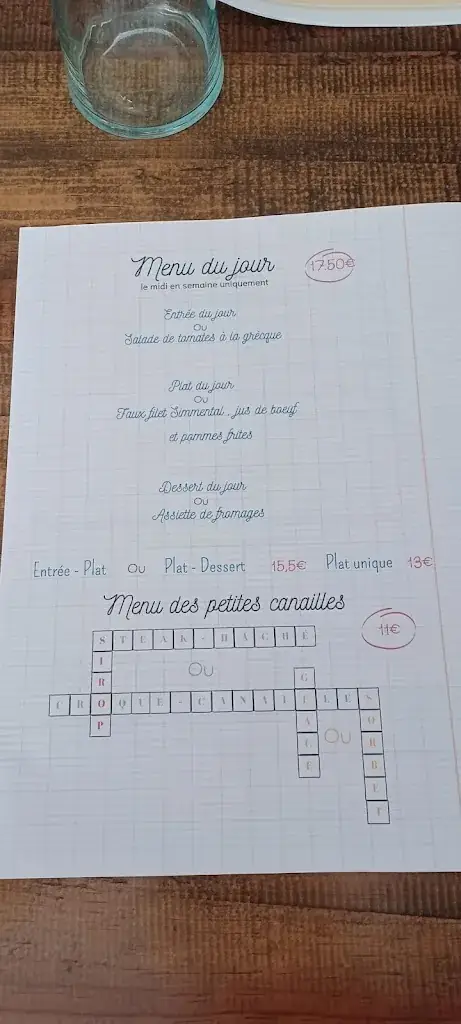 Menu du jour 17.50€
le midi en semaine uniquement
Entrée du jour
Ou
Salade de tomates à la grècque
Plat du jour
Ou
Faux filet Simmental, jus de boeuf
et pommes frites
Dessert du jour
Ou
Assiette de fromages
Entrée - Plat Ou Plat - Dessert 15,5€ Plat unique 13€
Menu des petites canailles
11€
STEAK-HACHÉ
SIROP
Ou
CROQUE-CANAILLES
GLACE
Ou
SORBET